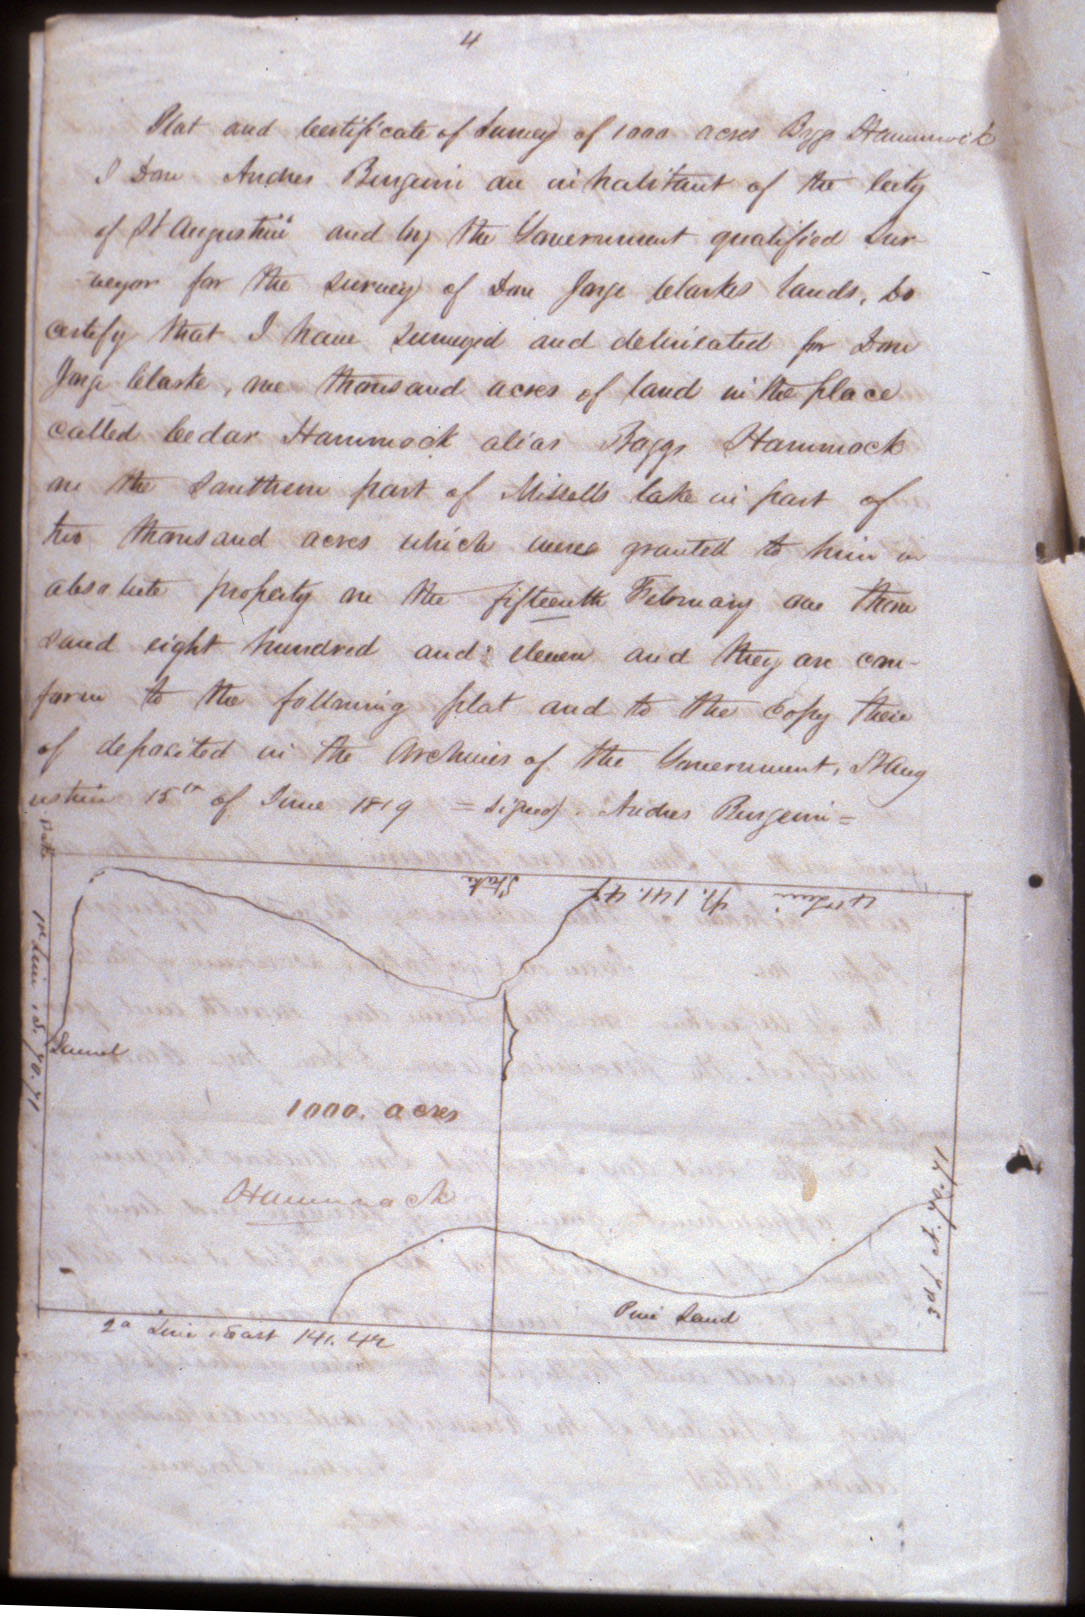 4
Plat and Certificate of Survey of 1000 acres Bags Hammock
I Don Andres Burgevin an inhabitant of the City
of St Augustin and by the Government qualified Sur-
veyor for the survey of Don Jorge Clarkes lands, Do
certify that I have surveyed and delineated for Don
Jorge Clarke, one thousand acres of land in the place
called Cedar Hammock alias Baggs Hammock
on the Southern part of Mizells lake in part of
two thousand acres which were granted to him in
absolute property on the fifteenth February one thou
sand eight hundred and eleven and they are con-
form to the following plat and to the Copy there
of deposited in the Archives of the Government, St Aug
ustin 15th of June 1819 = signed. Andres Burgevin =
Stake
4th Line N. 141.42
1st Line S. 70.71
Laurel
1000. acres
Hammock
3d L N. 70.71
Pine Land
2d Line East 141.42